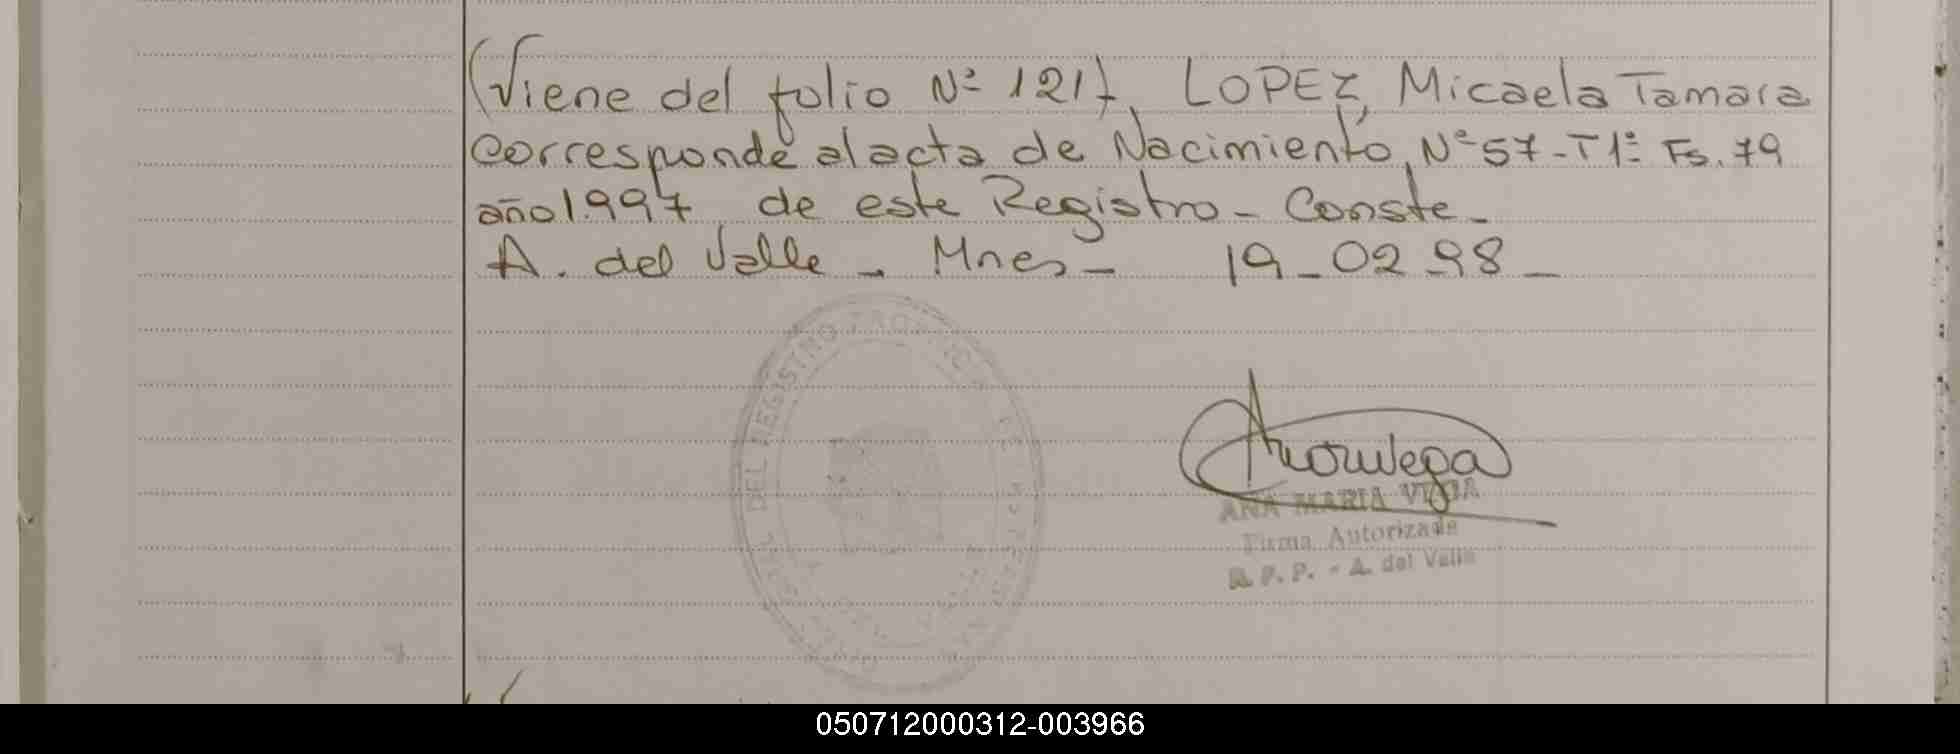 (Viene del folio Nº 121), LOPEZ, Micaela Tamara
corresponde al acta de Nacimiento, Nº 57 - T1º Fs. 79
año 1.997 de este Registro - Conste -
A. del Valle - Mnes - 19 - 02 - 98 -
DEL REGISTRO PROVINCIAL DE
ANA MARIA VEGA
Firma Autorizada
R. P. P. - A. del Valle
050712000312-003966